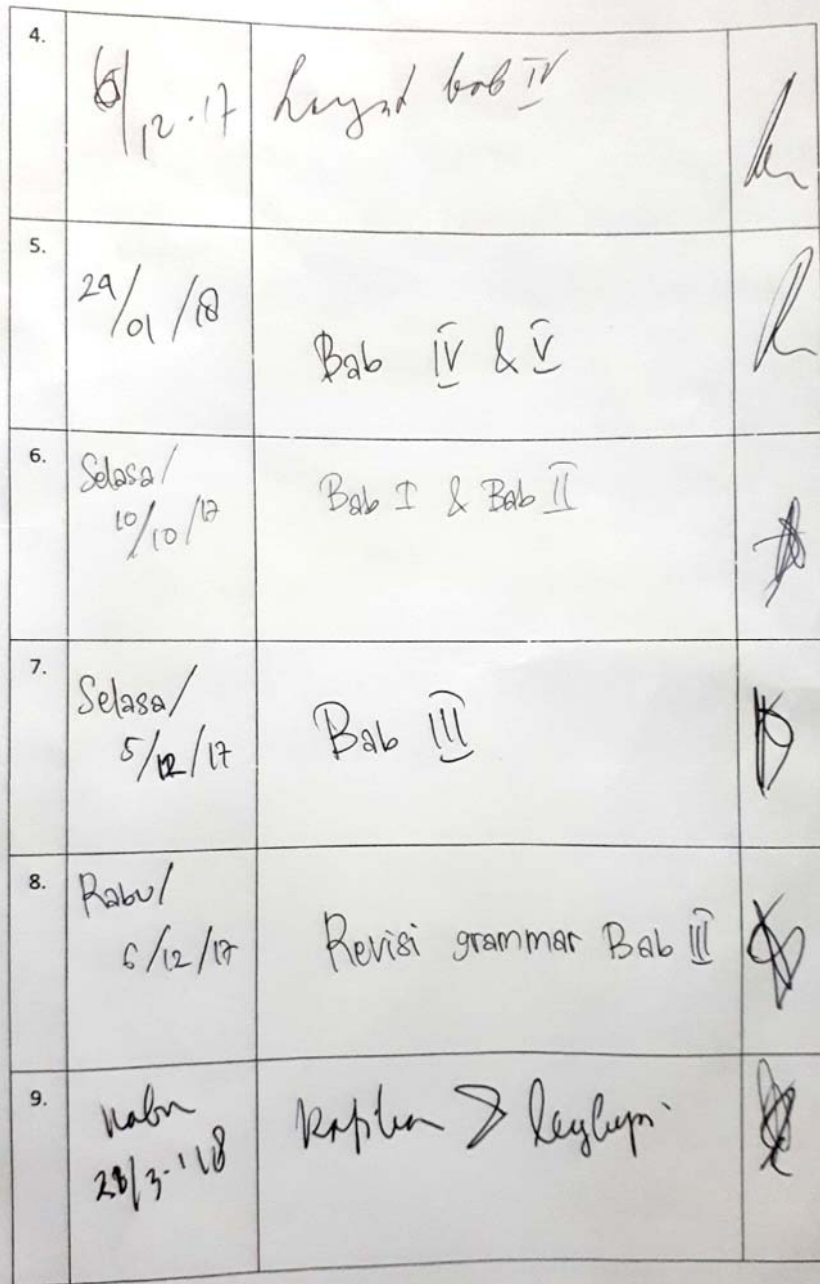 4.
/12-17
bab IV
5.
29/01/18
Bab IV & V
6.
Selasa/
10/10/17
Bab I & Bab II
7.
Selasa/
5/12/17
Bab III
8.
Rabu/
6/12/17
Revisi grammar Bab III
9.
Rabu
28/3-'18
Rapikan & lengkapi